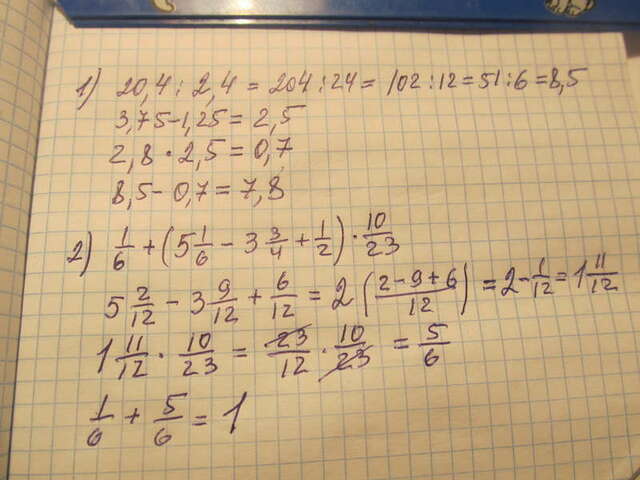 1) 20,4 : 2,4 = 204 : 24 = 102 : 12 = 51 : 6 = 8,5
3,75 - 1,25 = 2,5
2,8 · 2,5 = 0,7
8,5 - 0,7 = 7,8
2) 1/6 + (5 1/6 - 3 3/4 + 1/2) · 10/23
5 2/12 - 3 9/12 + 6/12 = 2 (2-9+6/12) = 2 - 1/12 = 1 11/12
1 11/12 · 10/23 = 23/12 · 10/23 = 5/6
1/6 + 5/6 = 1